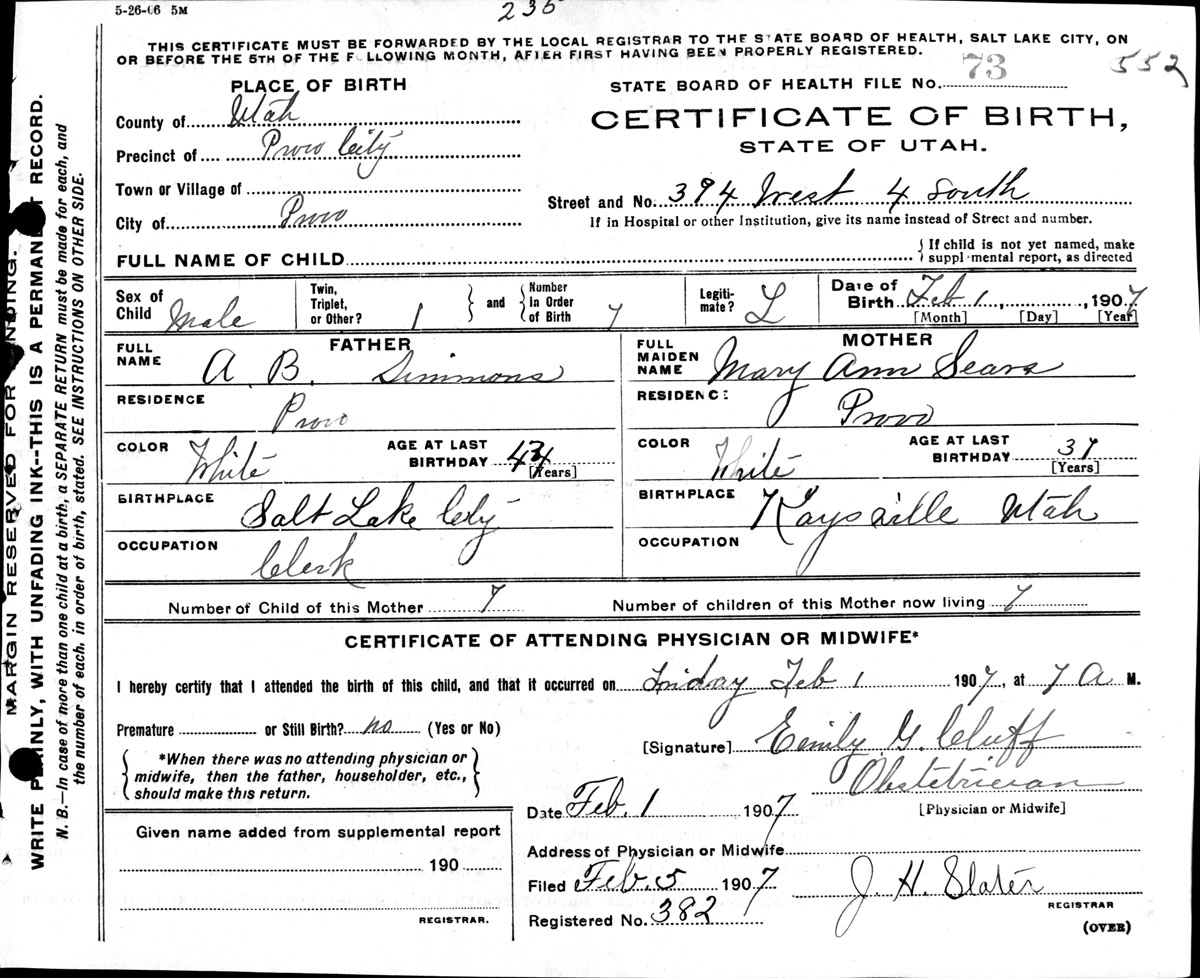 5-26-06 5M
235
THIS CERTIFICATE MUST BE FORWARDED BY THE LOCAL REGISTRAR TO THE STATE BOARD OF HEALTH, SALT LAKE CITY, ON
OR BEFORE THE 5TH OF THE FOLLOWING MONTH, AFTER FIRST HAVING BEEN PROPERLY REGISTERED.
552
STATE BOARD OF HEALTH FILE No. 73
PLACE OF BIRTH
CERTIFICATE OF BIRTH,
STATE OF UTAH.
County of Utah
Precinct of Provo City
Town or Village of
City of Provo
Street and No. 394 West 4 South
If in Hospital or other Institution, give its name instead of Street and number.
FULL NAME OF CHILD
{ If child is not yet named, make
supplemental report, as directed
Sex of Child Male
Twin, Triplet, or Other? 1 } and { Number in Order of Birth 7
Legiti-mate? L
Date of Birth Feb 1, 1907
[Month] [Day] [Year]
FATHER
FULL NAME A. B. Simmons
RESIDENCE Provo
COLOR White
AGE AT LAST BIRTHDAY 44
[Years]
BIRTHPLACE Salt Lake City
OCCUPATION Clerk
MOTHER
FULL MAIDEN NAME Mary Ann Sears
RESIDENCE Provo
COLOR White
AGE AT LAST BIRTHDAY 37
[Years]
BIRTHPLACE Kaysville Utah
OCCUPATION
Number of Child of this Mother 7
Number of children of this Mother now living 7
CERTIFICATE OF ATTENDING PHYSICIAN OR MIDWIFE*
I hereby certify that I attended the birth of this child, and that it occurred on Friday Feb 1 1907, at 7 A M.
Premature or Still Birth? no (Yes or No)
[Signature] Emily G. Cluff
Obstetrician
[Physician or Midwife]
{ *When there was no attending physician or
midwife, then the father, householder, etc.,
should make this return. }
Date Feb. 1 1907
Given name added from supplemental report
190
REGISTRAR.
Address of Physician or Midwife
Filed Feb. 5 1907
J. H. Slater
REGISTRAR
Registered No. 382
(OVER)
MARGIN RESERVED FOR BINDING.
WRITE PLAINLY, WITH UNFADING INK--THIS IS A PERMANENT RECORD.
N. B.—In case of more than one child at a birth, a SEPARATE RETURN must be made for each, and
the number of each, in order of birth, stated. SEE INSTRUCTIONS ON OTHER SIDE.